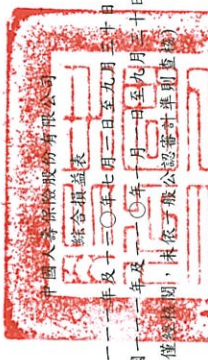 中國人壽保險股份有限公司
綜合損益表
一一一年及一一○年七月一日至九月三十日
一一一年及一一○年一月一日至九月三十日
僅經核閱 未依一般公認審計準則查核)